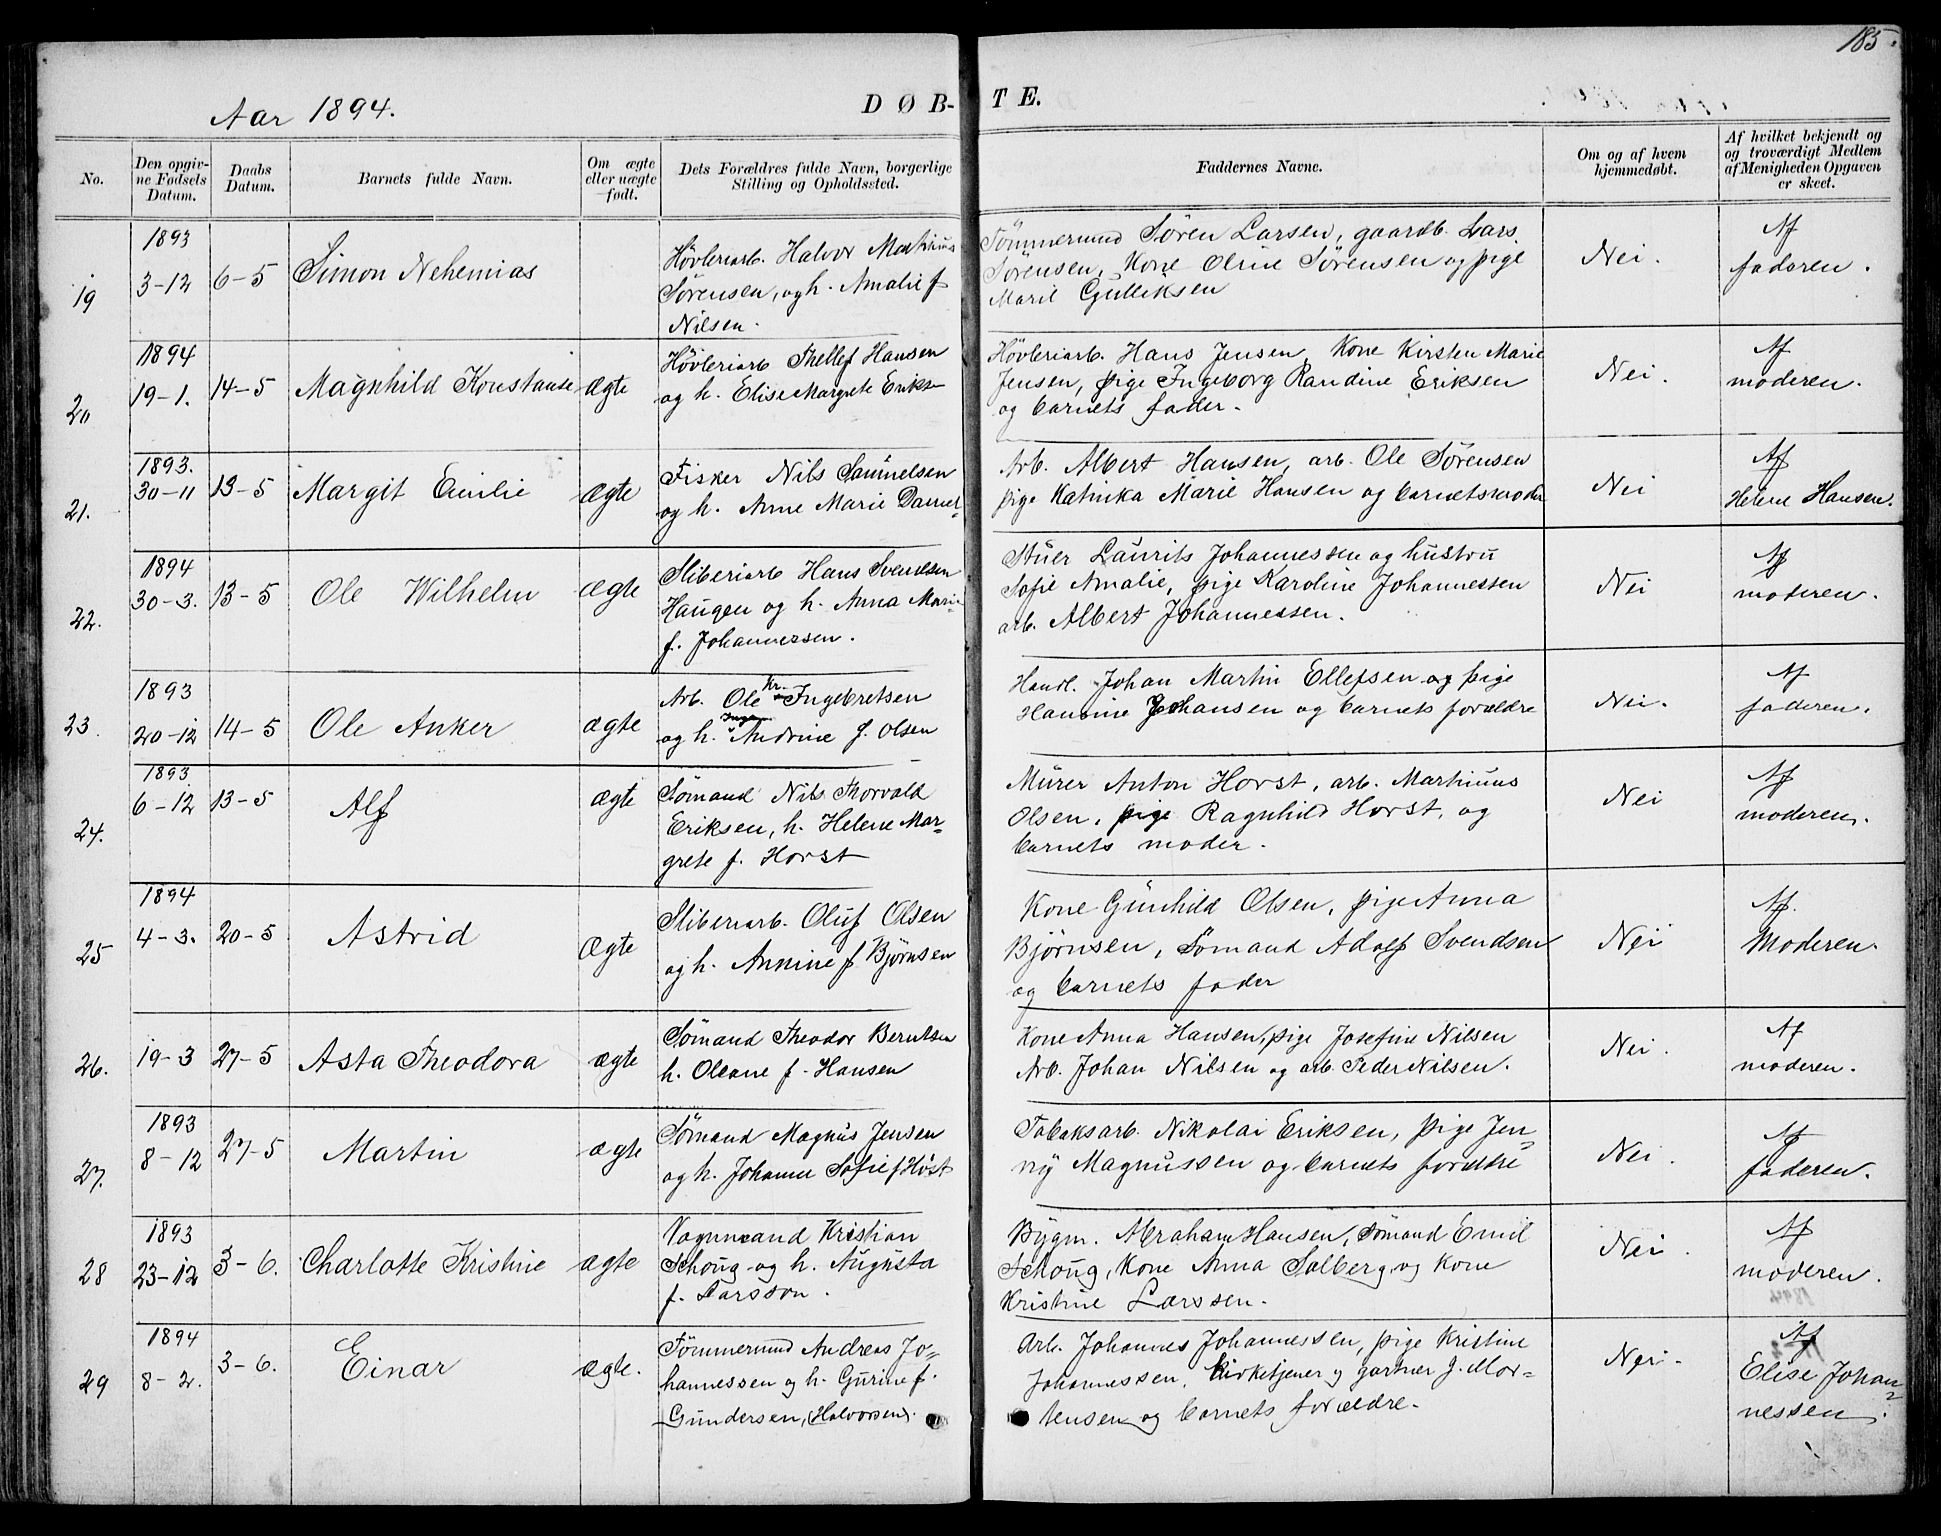 185.
Aar 1894.
DØB-TE.
No.
Den opgiv-
ne Fødsels
Datum.
Daabs
Datum.
Barnets fulde Navn.
Om ægte
eller uægte
født.
Dets Forældres fulde Navn, borgerlige
Stilling og Opholdssted.
Faddernes Navne.
Om og af hvem
hjemmedøbt.
Af hvilket bekjendt og
og troværdigt Medlem
af Menigheden Opgaven
er skeet.
19
1893
3-12
6-5
Simon Nehemias
Høvleriarb. Halvor Martinius
Sørensen, og h. Amalie f
Nilsen.
Tømmermnd Søren Larsen, gaardb. Lars
Sørensen, Kone Oline Sørensen og pige
Marie Gulliksen
Nei.
Af
faderen.
20
1894
19-1.
14-5
Magnhild Konstanse
ægte
Høvleriarb Thellef Hansen
og h. Elise Margrete Eriks
Høvleriarb. Hans Jensen, Kone Kirsten Marie
Jensen, pige Ingeborg Randine Eriksen
og barnets fader.
Nei.
Af
moderen.
21.
1893.
30-11
13-5
Margit Emilie
ægte
Fisker Nils Samuelsen
og h. Anne Marie
Arb. Albert Hansen, arb. Ole Sørensen
pige Katinka Marie Hansen og barnets moder
Nei
Af
Helene Hansen.
22.
1894
30-3.
13-5
Ole Wilhelm
ægte
Sliberiarb Hans Svendsen
Haugen og h. Anna Marie
f. Johannersen.
Stuer Laurits Johannessen og hustru
Sofie Amalie, pige Karoline Johannessen
arb. Albert Johannessen.
Nei
Af
moderen.
23.
1893
20-12
14-5
Ole Anker
ægte
Arb. Ole Kr. Ingebretsen
og h. Inga Andrine f. Olsen
Handl. Johan Martin Ellefsen og pige
Hansine Johansen og barnets forældre
Nei.
Af
faderen.
24.
1893
6-12
13-5
Alf
ægte
Sømand Nils Thorvald
Eriksen, h. Helene Mar-
grete f. Horst
Murer Anton Horst, arb. Martinius
Olsen, pige Ragnhild Horst, og
barnets moder.
Nei
Af
moderen.
25
1894
4-3.
20-5
Astrid
ægte
Sliberiarb. Oluf Olsen
og h. Annine f Bjørnsen
Kone Gunhild Olsen, pige Anna
Bjørnsen, Sømand Adolf Svendsen
og barnets fader
Nei
Af.
Moderen.
26.
19-3
27-5
Asta Theodora
ægte
Sømand Theodor Berntsen
h. Oleane f. Hansen
Kone Anna Hansen, pige Josefine Nilsen
Arb. Johan Nilsen og arb. Peder Nilsen.
Nei.
Af
moderen.
27.
1893
8-12
27-5
Martin
ægte
Sømand Magnus Jensen
og h. Johanne Sofie f Høst
Tobaksarb. Nikolai Eriksen, pige Jen-
ny Magnussen og barnets forældre
Nei.
Af
faderen.
28
1893
23-12
3-6.
Charlotte Kristine
ægte
Vognmand Kristian
Schoug og h. Augusta
f. Larsson.
Bygm. Abraham Hansen, Sømand Emil
Schoug, Kone Anna Solberg og Kone
Kristine Larssen.
Nei.
Af
moderen.
29
1894
8-2.
3-6.
Einar
ægte.
Tømmermnd Andreas Jo-
hannessen og h. Gurine f.
Gundersen, (Halvorsen).
Arb. Johannes Johannessen, pige Kristine
Johannessen, Kirketjener og gartner J. Mor-
tensen og barnets forældre.
Nei.
Af
Elise Johan-
nessen.